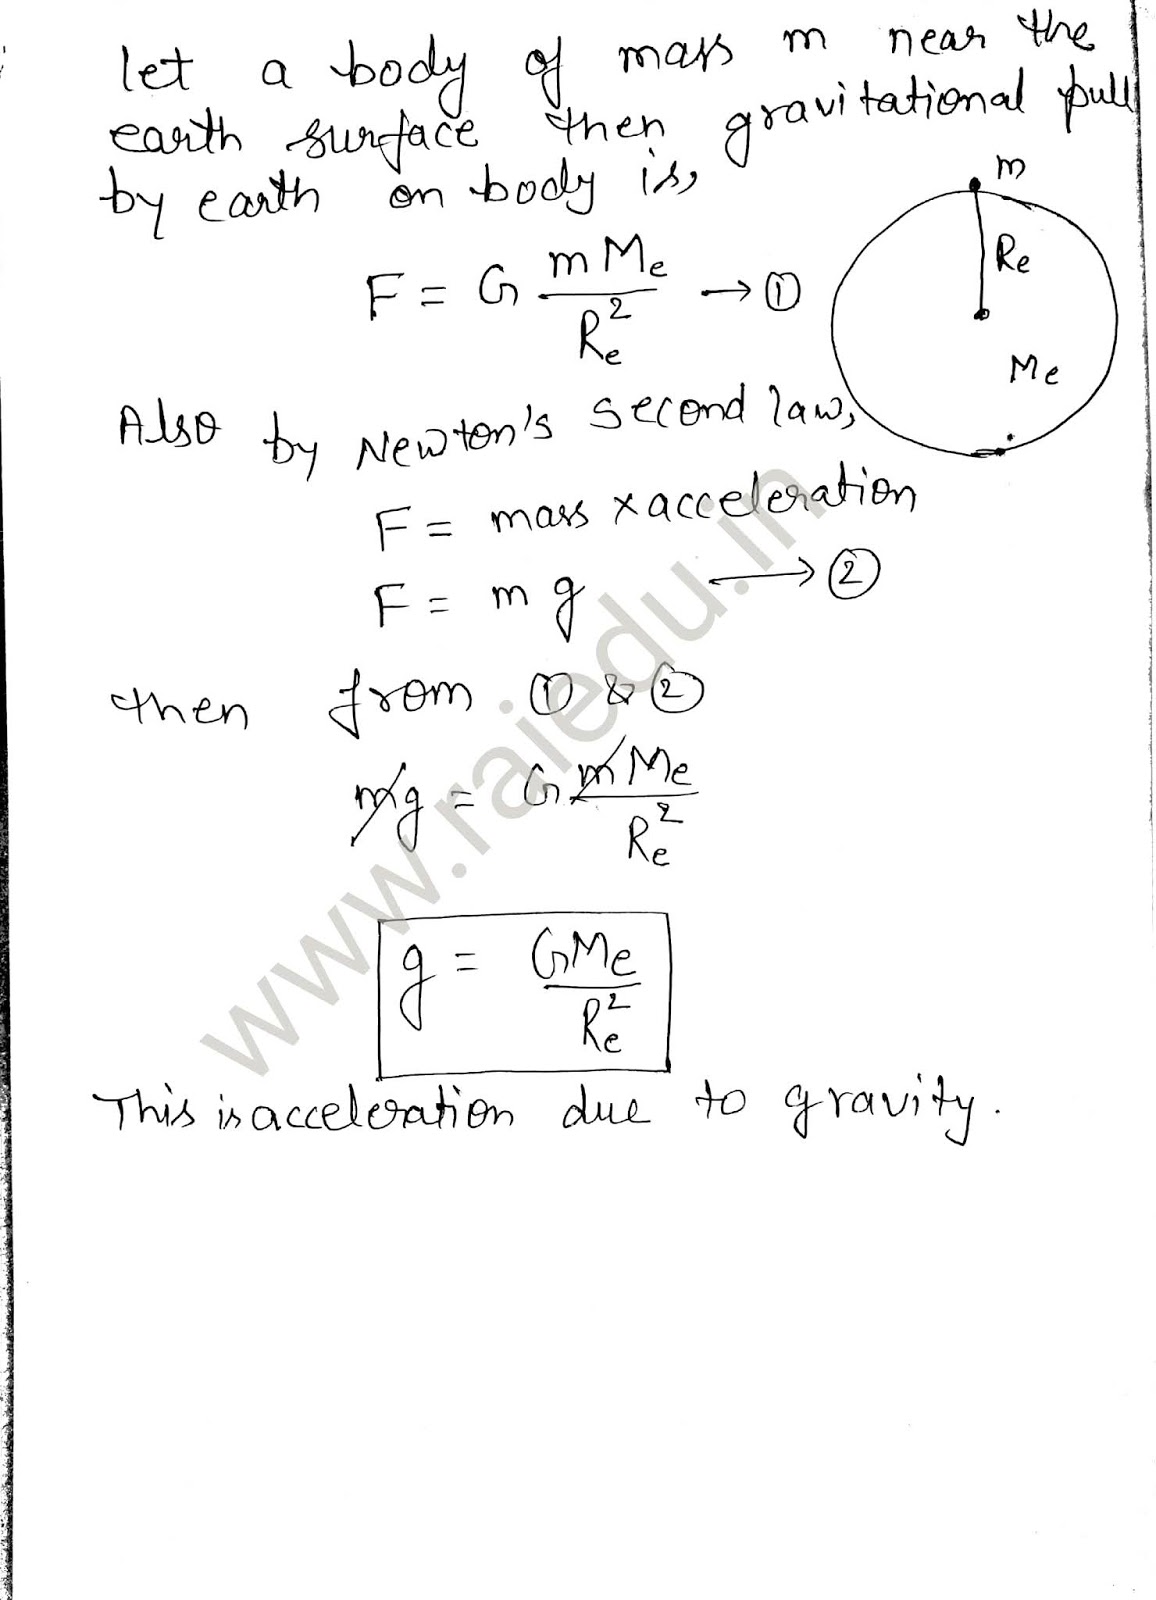 let a body of mass m near the
earth surface then gravitational pull
by earth on body is,
m
Re
Me
F = G mMe/Re² → ①
Also by Newton's second law,
F = mass x acceleration
F = m g → ②
then from ① & ②
mg = G mMe/Re²
g = GMe/Re²
This is acceleration due to gravity.
www.raiedu.in